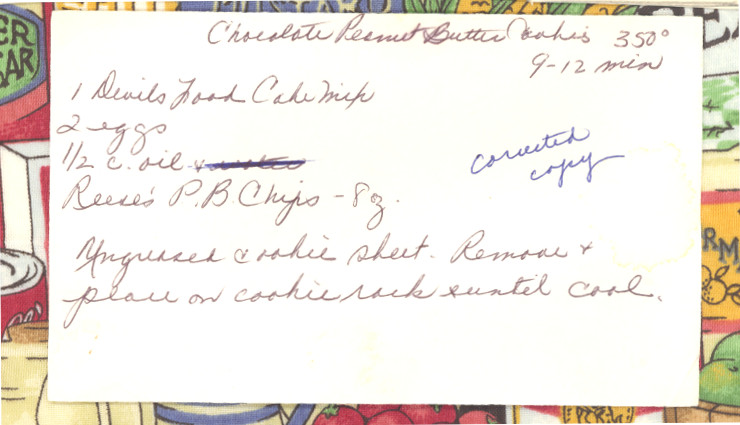 Chocolate Peanut Butter Cookies 350°
9-12 min
1 Devils Food Cake Mix
2 eggs
1/2 c. oil + water
corrected
copy
Reese's P.B. Chips - 8 oz.
Ungreased cookie sheet. Remove +
place on cookie rack until cool.
ER
AR
EA
RM